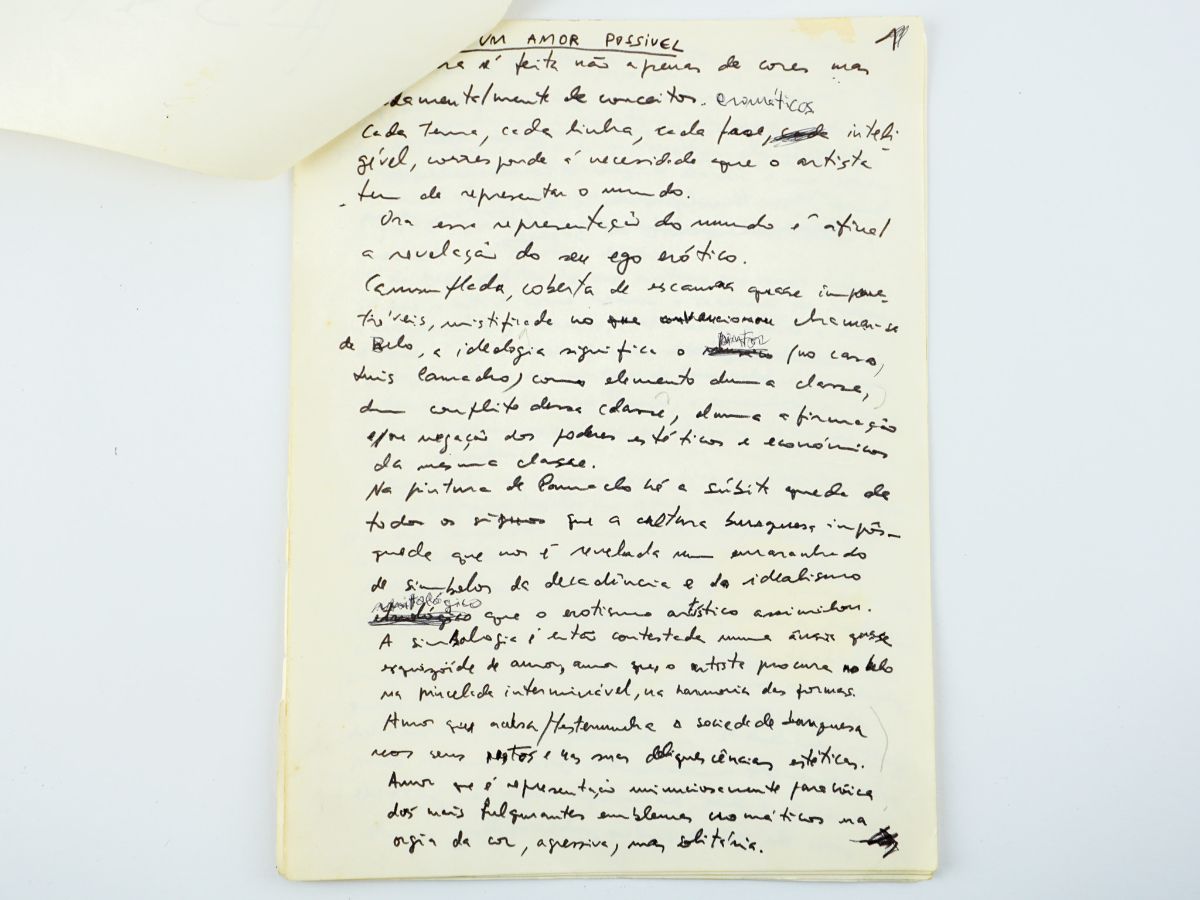 UM AMOR POSSIVEL
é feita não apenas de cores mas
damentalmente de conceitos. cromáticos
Cada tema, cada linha, cada fase, inteli-
gível, corresponde á necessidade que o artista
tem de representar o mundo.
Ora essa representação do mundo é afinal
a revelação do seu ego erótico.
Camuflada, coberta de escamas quase impene-
tráveis, mistificada no convencionou chamar-se
de Belo, a ideologia significa o pintor (no caso,
Luis Camacho) como elemento duma classe,
dum conflito dessa classe, duma afirmação
e/ou negação dos poderes estéticos e económicos
da mesma classe.
Na pintura de Camacho há a súbita queda de
todos os signos que a cultura burguesa impôs -
queda que nos é revelada num emaranhado
de simbolos da decadência e do idealismo
mitológico
que o erotismo artístico assimilou.
A simbologia é então contestada numa ânsia quase
esquizóide de amor, amor que o artista procura no belo
na pincelada interminável, na harmonia das formas.
Amor que acusa/testemunha a sociedade burguesa
nos seus restos e nas suas deliquescências estéticas.
Amor que é representação minuciosamente paranóica
dos mais fulgurantes emblemas cromáticos na
orgia da cor, agressiva, mas solitária.